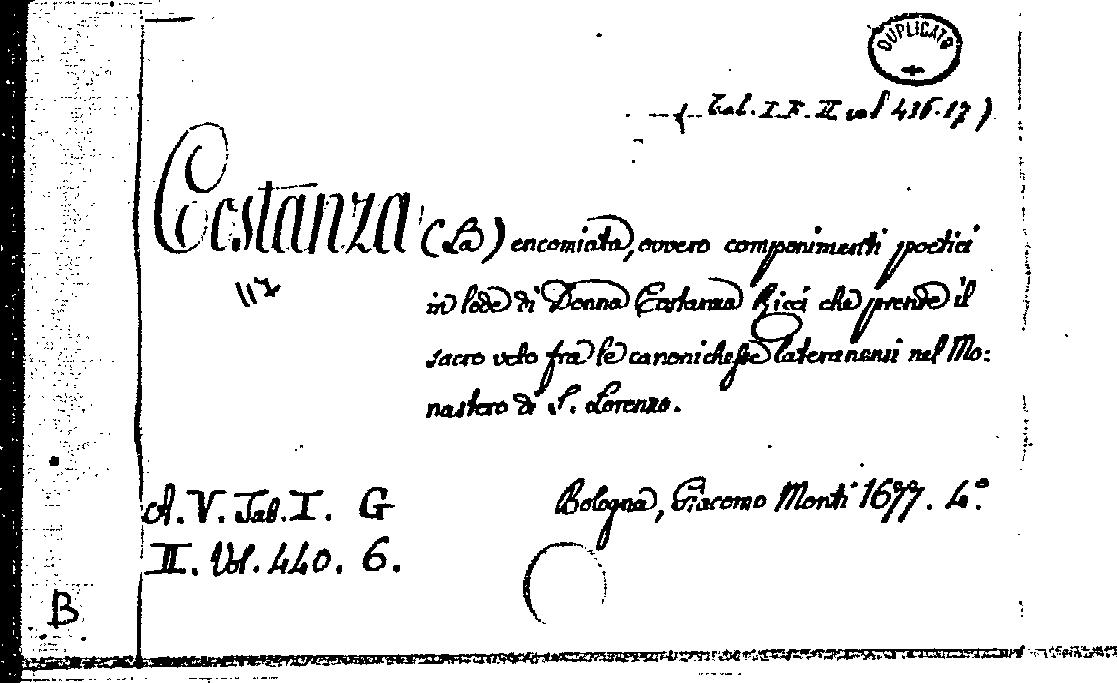 DUPLICATO
(Tab. I. F. II vol 416.17)
Costanza (La) encomiata, ovvero componimenti poetici
117
in lode di Donna Costanza Ricci che prende il
sacro velo fra le canonichesse lateranensi nel Mo:
nastero di S. Lorenzo.
A. V. Tab. I. G
Bologna, Giacomo Monti 1677. 4.°
II. Vol. 440. 6.
B